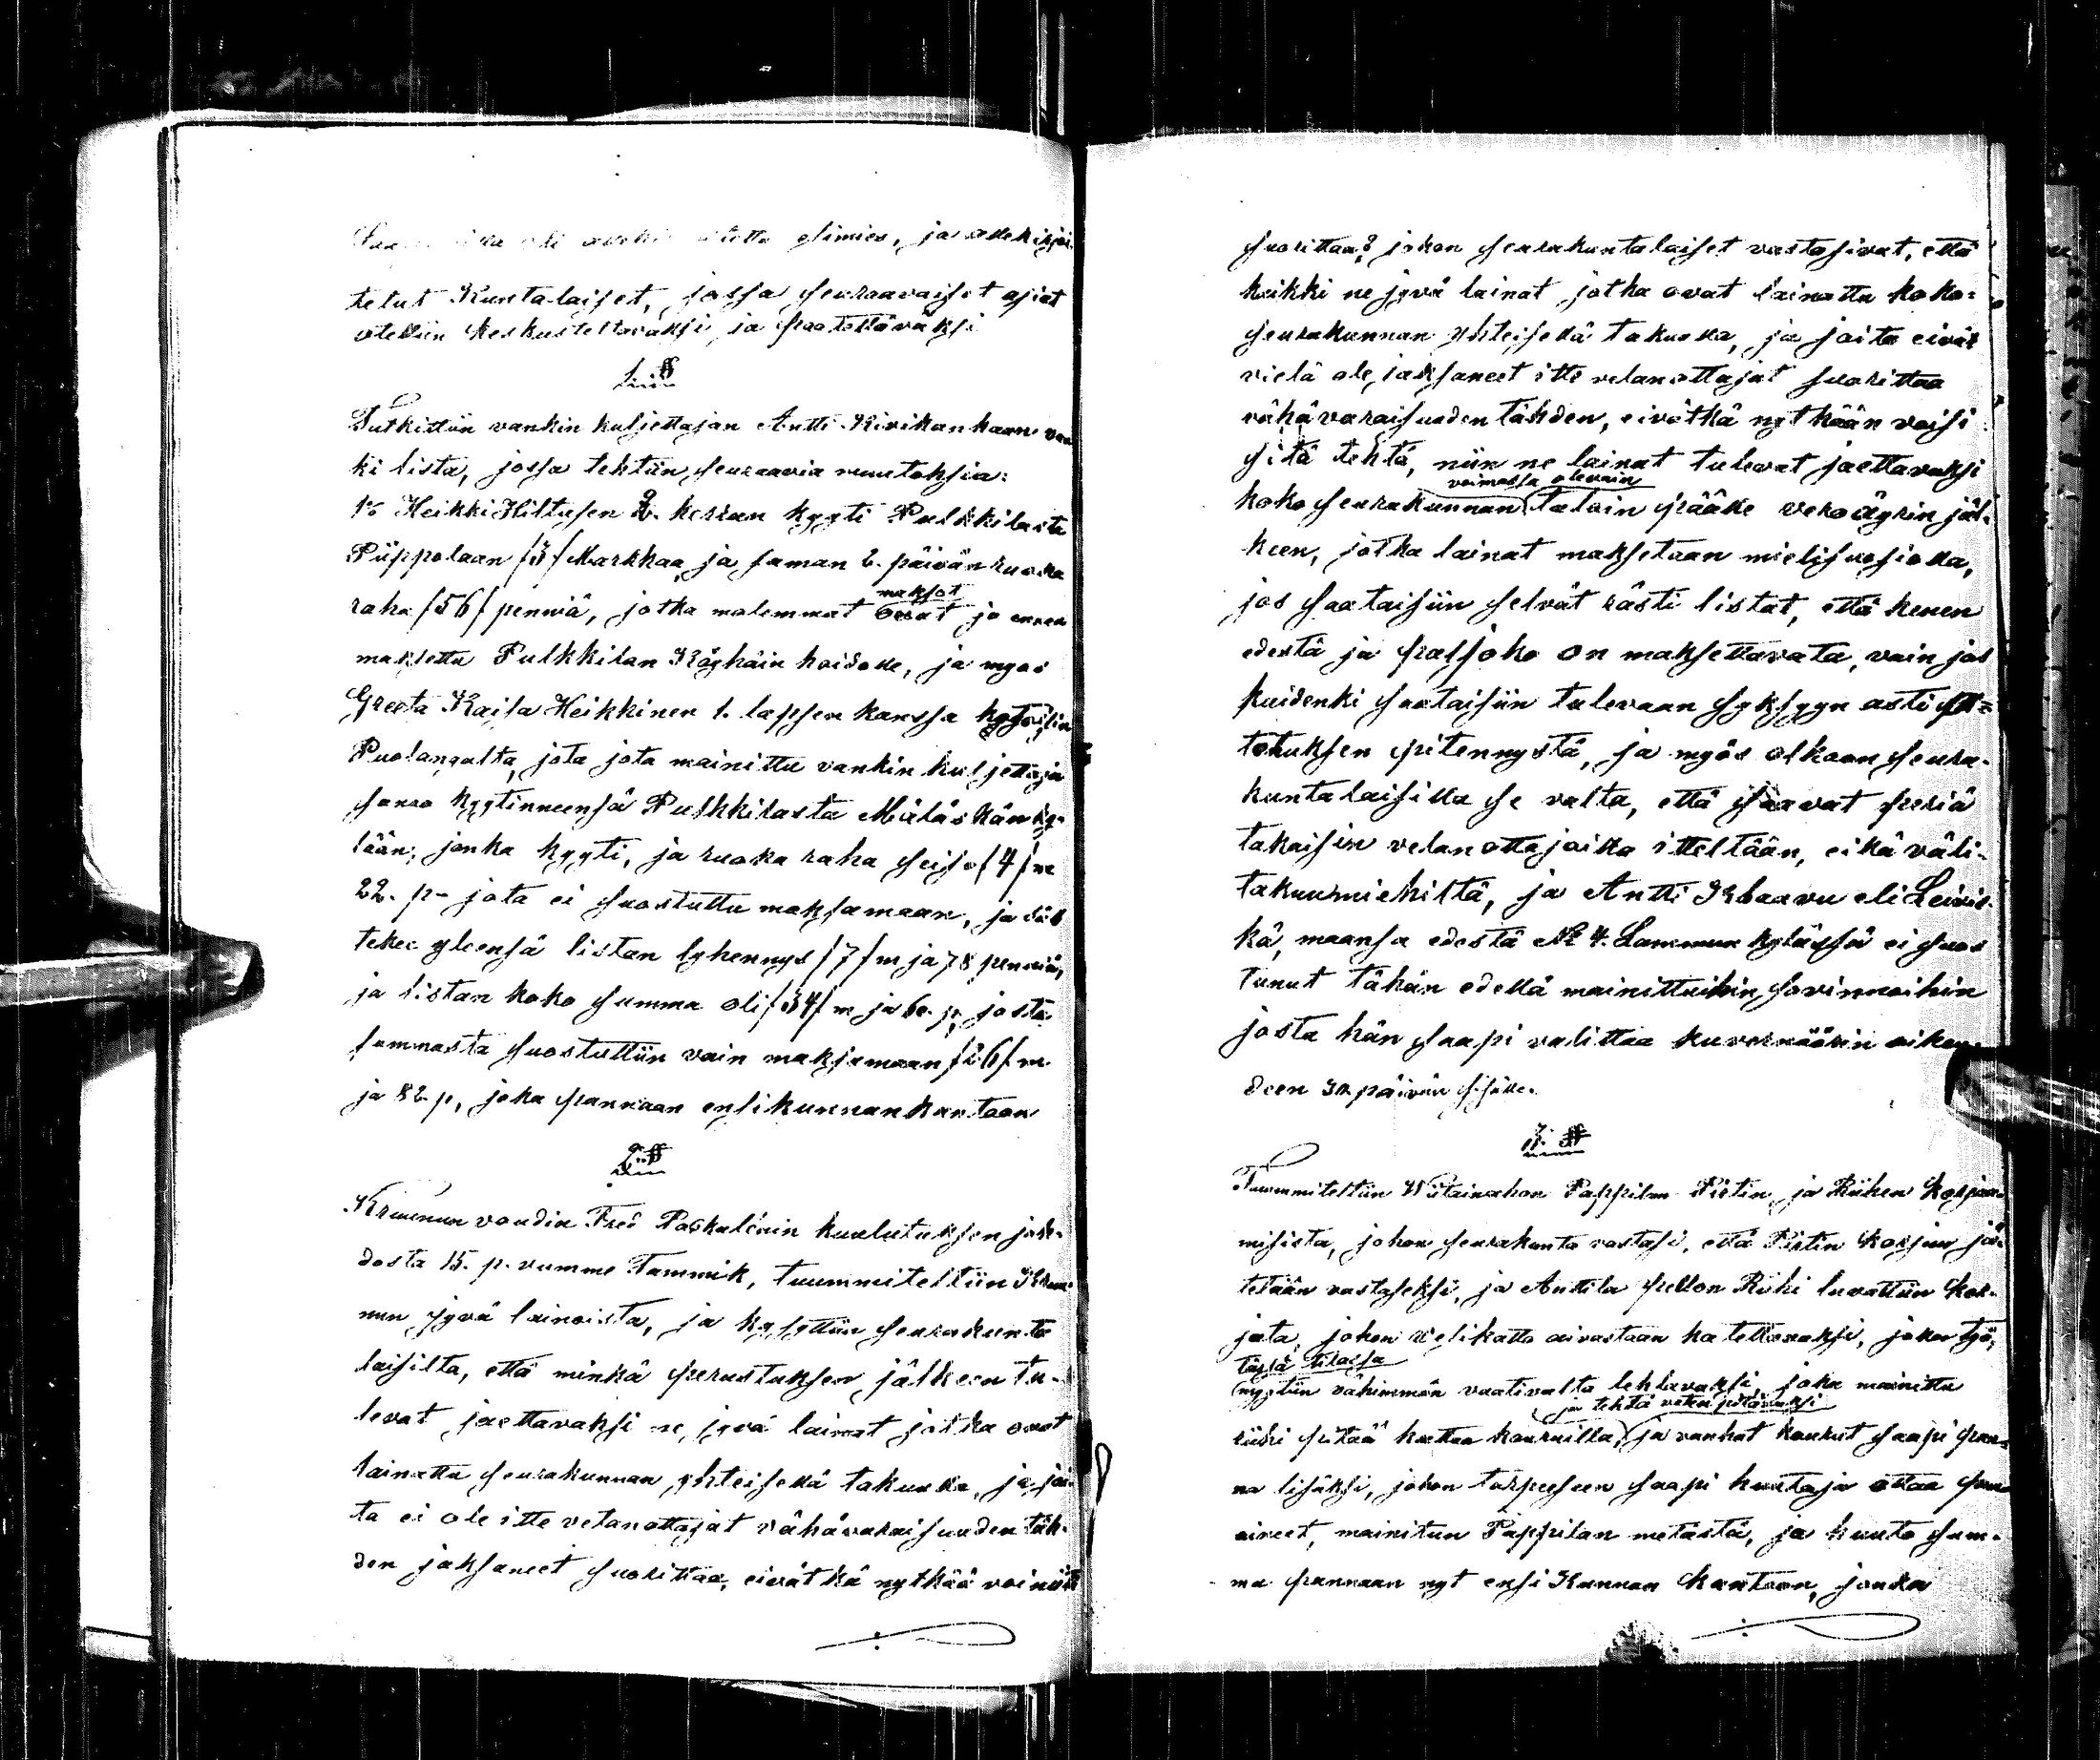 oli esimies, ja allekirjoi-
tetut Kuntalaiset, jossa seuraavaiset asiat
otettiin keskusteltavaksi ja päätettäväksi
1. §
Tutkittiin vankin kuljettajan Antti Kivikankaan van
ki lista, jossa tehtiin seuraavia muutoksia:
1:o Heikki Hiltusen 2. kerran kyyti Pulkkilasta
Piippolaan /3/ Markkaa, ja saman 2. päivän ruoka
raha /56/ penniä, jotka molemmat maksot ovat jo ennen
maksettu Pulkkilan Köyhäin hoidolle, ja myös
Greeta Kaisa Heikkinen 1. lapsen kanssa
Puolangalta, jota jota mainittu vankin kuljettaja
sanoo kyytinneensä Pulkkilasta Mäläskän ky-
lään; jonka kyyti, ja ruoka raha seiso /4/ m
22. p- jota ei suostuttu maksamaan, ja siis
tekee yleensä listan lyhennys /7/ m ja 78 penniä,
ja listan koko summa oli /34/ m ja 60. p, josta
summasta suostuttiin vain maksamaan /26/ m
ja 82 p, joka pannaan ensikunnan kantoon
2. §
Kruunun voudin Fred Paskulénin kuulutuksen joh-
dosta 15. p. vumme Tammik, tuummiteltiin Kruu-
nun jyvä lainoista, ja kysyttiin seurakunta
laisilta, että minkä perustuksen jälkeen tu-
levat jaettavaksi ne jyvä lainat jotka ovat
lainattu seurakunnan yhteisellä takuulla, ja joi-
ta ei ole itte velanottajat vähävaraisuuden täh-
den jaksaneet suorittaa, eivätkä nytkää voi niitä
suorittaa? johon seurakuntalaiset vastasivat, että
kaikki ne jyvä lainat jotka ovat lainattu koko-
seurakunnan yhteisellä takuulla, ja joita eivät
vielä ole jaksaneet itte velanottajat suorittaa
vähävaraisuuden tähden, eivätkä nytkään voisi
sitä tehtä, niin ne lainat tulevat jaettavaksi
koko seurakunnan voimassa olevain taloin päälle veroäyrin jäl-
keen, jotka lainat maksetaan mielisuosiolla,
jos saataisiin selvät rästi listat, että kenen
edestä ja paljoko on maksettavata, vain jos
kuidenki saataisiin tulevaan syksyyn asti
totuksen pitennystä, ja myös olkoon seura-
kuntalaisilla se valta, että saavat periä
takaisin velanottajoilta itteltään, eikä väli-
takuumiehiltä, ja Antti Kbaavu eli Leivis-
kä, maansa edestä No 4. Lammun kylässä ei suos
tunut tähän edellä mainittuihin sovinnoihin
josta hän saapi valittaa kuvernöörin oikeu-
deen 30. päivän sisälle.
3. §
Tuummiteltiin Wiitainahon Pappilan Pirtin ja Riihen Korjaa-
misista, johon seurakunta vastasi, että Pirtin Korjuu jä-
tetään vastaseksi, ja Anttila pellon Riihi luvattiin kor-
jata, johon Velikatto aivastaan katettavaksi, joka työ,
tässä tilassa
myytiin vähimmän vaativalta tehtavaksi, joka mainittu
ja tehtä veden pitäväksi
riihi pitää kattaa kouruilla, ja vanhat kourut saapi pan-
na lisäksi, johon tarpeeseen saapi huutaja ottaa puu
aineet, mainitun Pappilan metästä, ja huuto sum-
ma pannaan nyt ensi Kunnan kantoon, jonka